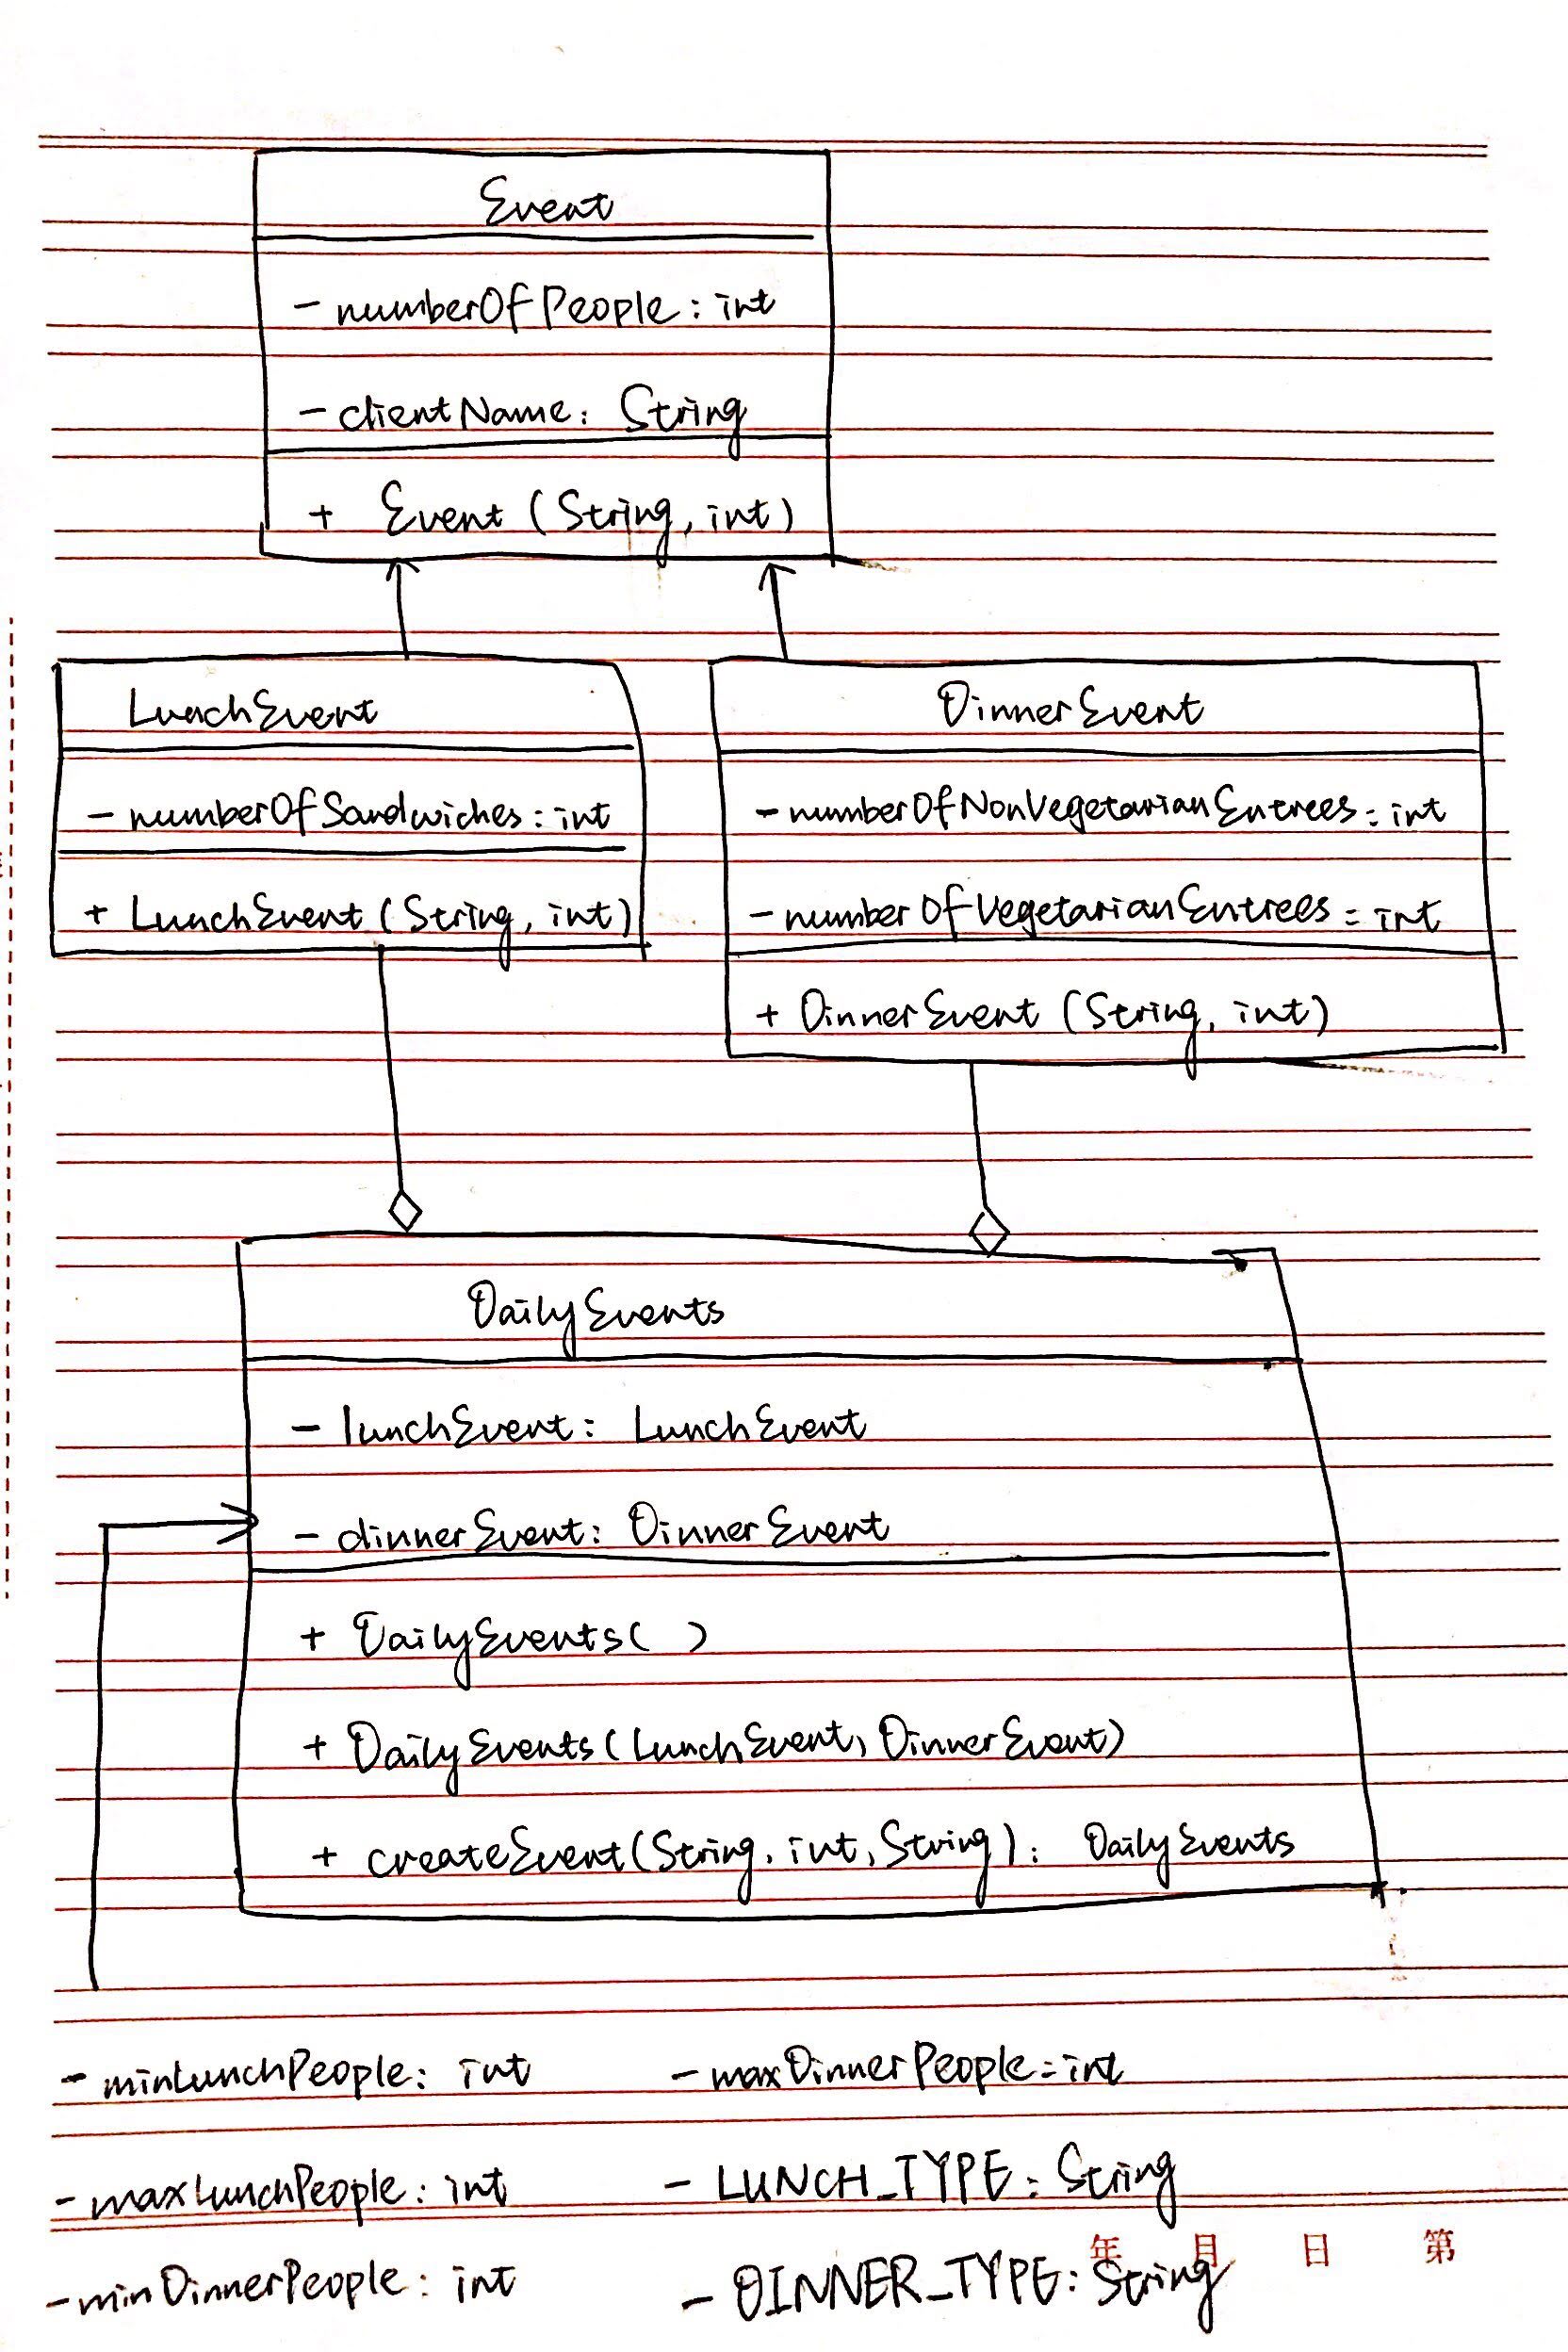 Event
- numberOfPeople : int
- clientName : String
+ Event (String, int)
LunchEvent
- numberOfSandwiches : int
+ LunchEvent (String, int)
DinnerEvent
- numberOfNonVegetarianEntrees : int
- numberOfVegetarianEntrees : int
+ DinnerEvent (String, int)
DailyEvents
- lunchEvent : LunchEvent
- dinnerEvent : DinnerEvent
+ DailyEvents( )
+ DailyEvents(LunchEvent, DinnerEvent)
+ createEvent(String, int, String) : DailyEvents
- minLunchPeople : int
- maxLunchPeople : int
- minDinnerPeople : int
- maxDinnerPeople : int
- LUNCH_TYPE : String
- DINNER_TYPE : String
年 月 日 第